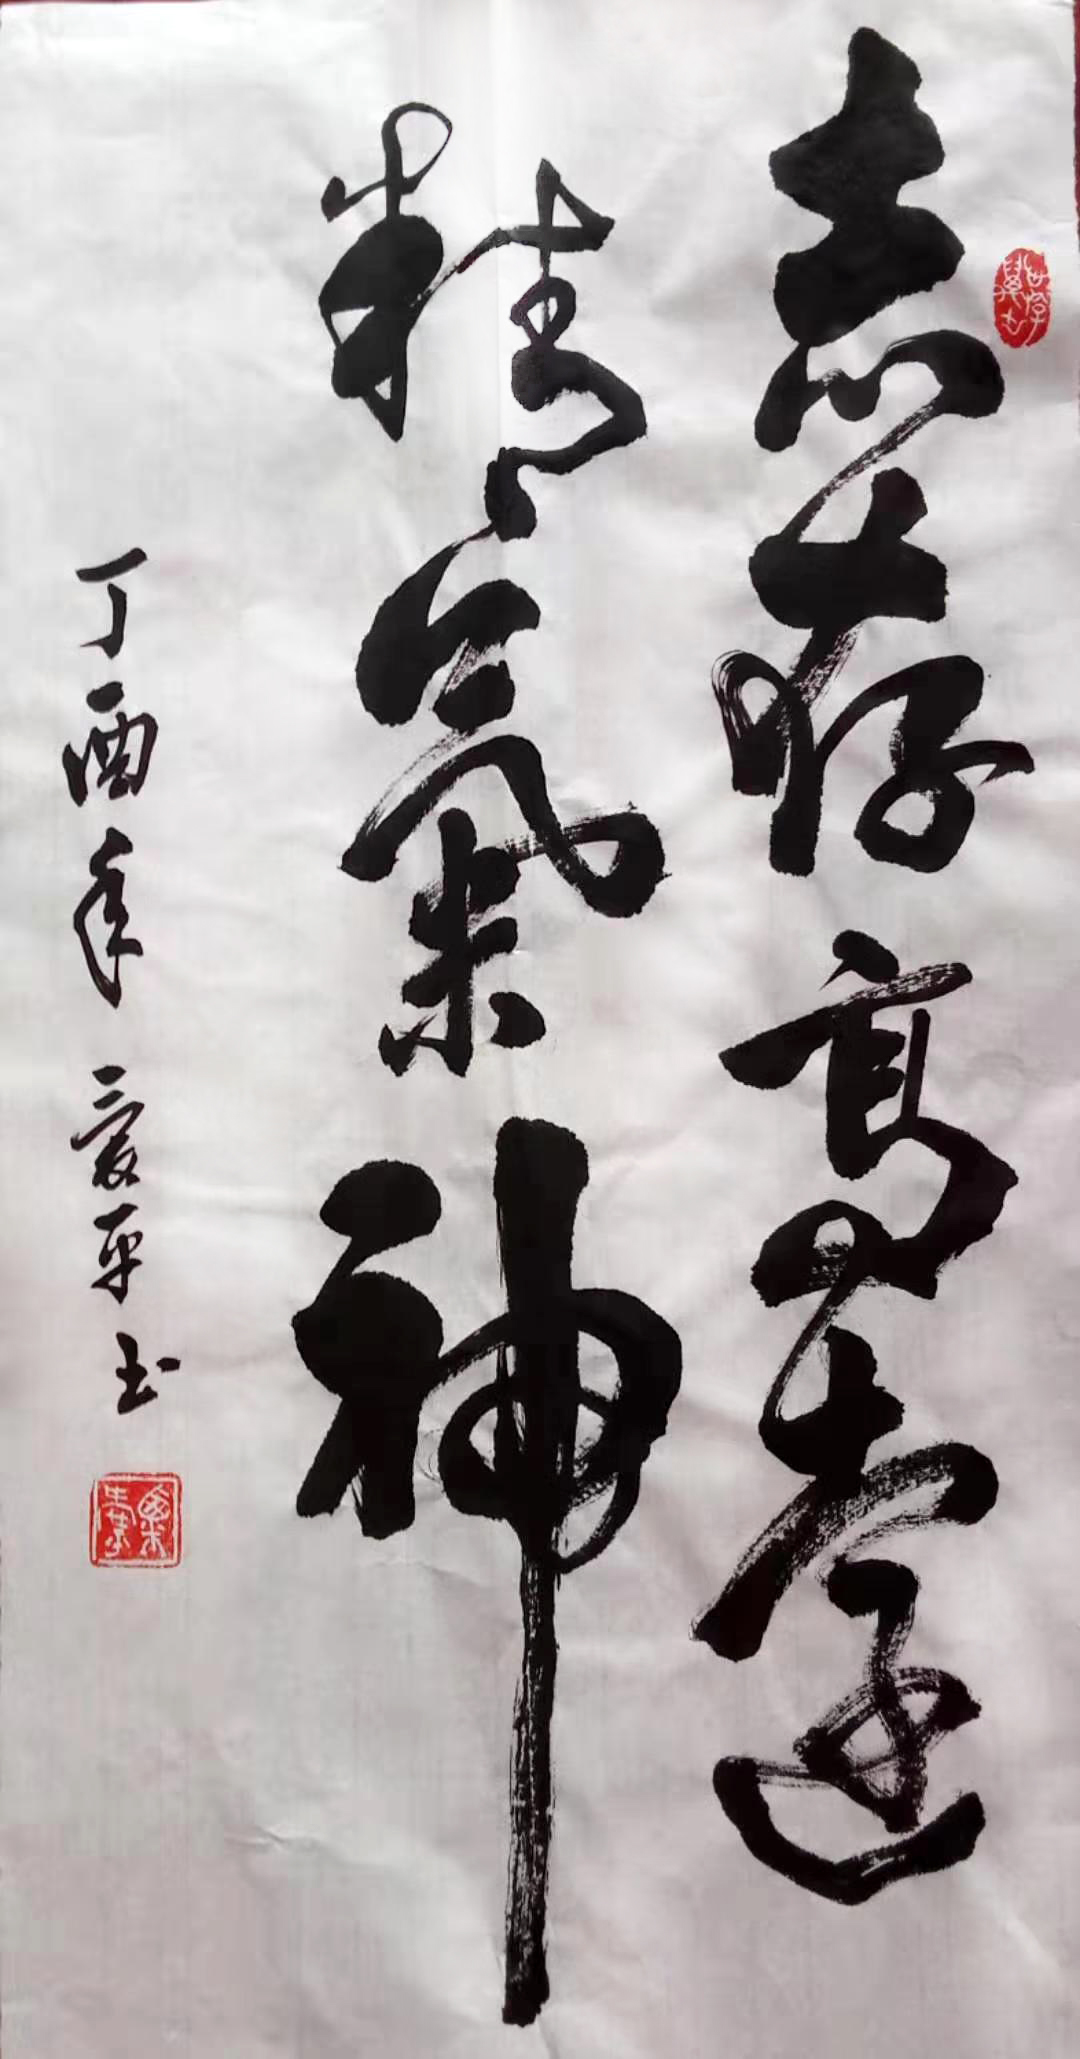 志存高遠
精氣神
丁酉年 爱平书